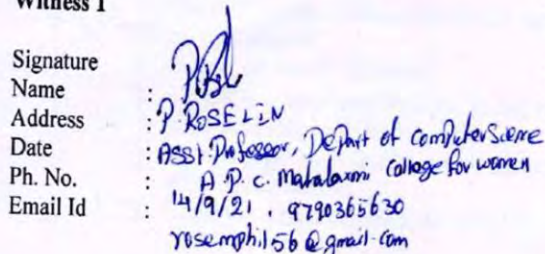 Witness 1
Signature
Name :
Address : P. ROSELIN
Date : Asst. Professor, Depart of computer Science
Ph. No. : A. P. C. Mahalaxmi college for women
Email Id : 14/9/21, 9790365630
rosemphil56@gmail.com